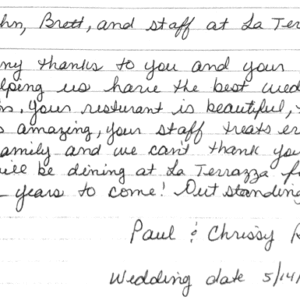 hn, Brett, and staff at La Terr
ny thanks to you and your
lping us have the best wed
n, your resturant is beautiful,
s amazing, your staff treats e
amily and we can't thank you
ill be dining at La Terrazza f
years to come! Outstanding
Paul & Chrissy R
Wedding date 5/14/